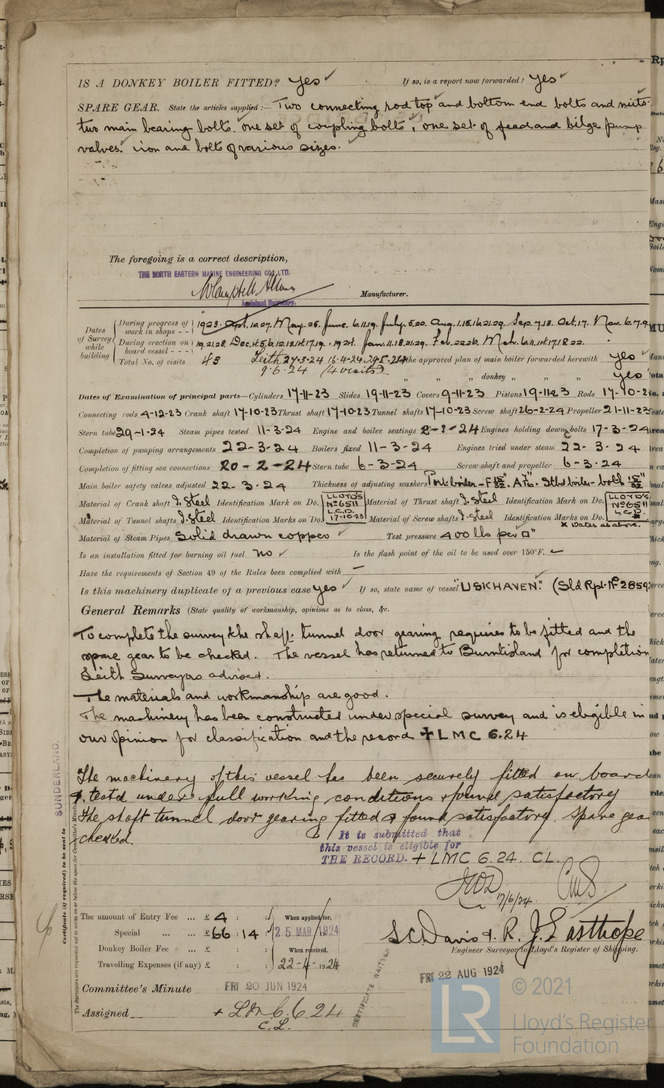 IS A DONKEY BOILER FITTED? Yes ✓ If so, is a report now forwarded? Yes ✓
SPARE GEAR. State the articles supplied:— Two connecting rod top and bottom end bolts and nuts
two main bearing bolts, one set of coupling bolts, one set of feed and bilge pump
valves iron and bolts of various sizes.
The foregoing is a correct description,
THE NORTH EASTERN MARINE ENGINEERING CO., LTD.
Manufacturer.
Dates of Survey while building
During progress of work in shops - - 1923. Apl. 10.27. May. 25. June. 6.11.19. July. 5.20. Aug. 1.15.16.21.29. Sep. 7.18. Oct. 17. Nov. 6.7.9.
During erection on board vessel - - - 19.21.28 Dec. 1924. Jan. 11.18.21.29. Feb. 22.26. Mch.
Total No. of visits 48 Leith 27-3-24 16-4-24 9-6-24 (4 visits) the approved plan of main boiler forwarded herewith yes ✓
" " " donkey " " yes
Dates of Examination of principal parts—Cylinders 17-11-23 Slides 19-11-23 Covers 9-11-23 Pistons 19-11-23 Rods 17-10-2
Connecting rods 4-12-23 Crank shaft 17-10-23 Thrust shaft 17-10-23 Tunnel shafts 17-10-23 Screw shaft 26-2-24 Propeller 21-11-23
Stern tube 29-1-24 Steam pipes tested 11-3-24 Engine and boiler seatings 8-1-24 Engines holding down bolts 17-3-24
Completion of pumping arrangements 22-3-24 Boilers fixed 11-3-24 Engines tried under steam 22-3-24
Completion of fitting sea connections 20-2-24 Stern tube 6-3-24 Screw shaft and propeller 6-3-24
Main boiler safety valves adjusted 22-3-24 Thickness of adjusting washers
Material of Crank shaft I. Steel Identification Mark on Do. LLOYD'S No 6511 L.C.D. 17-10-23 Material of Thrust shaft I. Steel Identification Mark on Do. LLOYD'S No 6511 L.C.D.
Material of Tunnel shafts I. Steel Identification Marks on Do. Material of Screw shafts I. Steel Identification Marks on Do. x Dates as above.
Material of Steam Pipes Solid drawn copper ✓ Test pressure 400 lbs per □"
Is an installation fitted for burning oil fuel no ✓ Is the flash point of the oil to be used over 150°F. —
Have the requirements of Section 49 of the Rules been complied with —
Is this machinery duplicate of a previous case yes ✓ If so, state name of vessel "USKHAVEN." (Sld Rpt. No 2859
General Remarks (State quality of workmanship, opinions as to class, &c.
To complete the survey the shaft tunnel door gearing requires to be fitted and the
spare gear to be checked. The vessel has returned to Burntisland for completion
Leith Surveyors advised.
The materials and workmanship are good.
The machinery has been constructed under special survey and is eligible in
our opinion for classification and the record + LMC 6.24
The machinery of this vessel has been securely fitted on board
& tested under full working conditions & found satisfactory
The shaft tunnel door gearing fitted & found satisfactory. Spare gear
checked.
It is submitted that
this vessel is eligible for
THE RECORD. + LMC 6.24. CL.
7/6/24.
SUNDERLAND.
The amount of Entry Fee ... £ 4 : : When applied for,
Special ... ... £ 66 : 14 : 25 MAR 1924
Donkey Boiler Fee ... £ : : When received,
Travelling Expenses (if any) £ : : 22-4-1924
S.C. Davis & R. J. Easthope
Engineer Surveyor to Lloyd's Register of Shipping.
Committee's Minute FRI 20 JUN 1924 FRI 22 AUG 1924
Assigned + LMC 6.24
C.L.
CERTIFICATE WRITTEN
LR © 2021
Lloyd's Register
Foundation